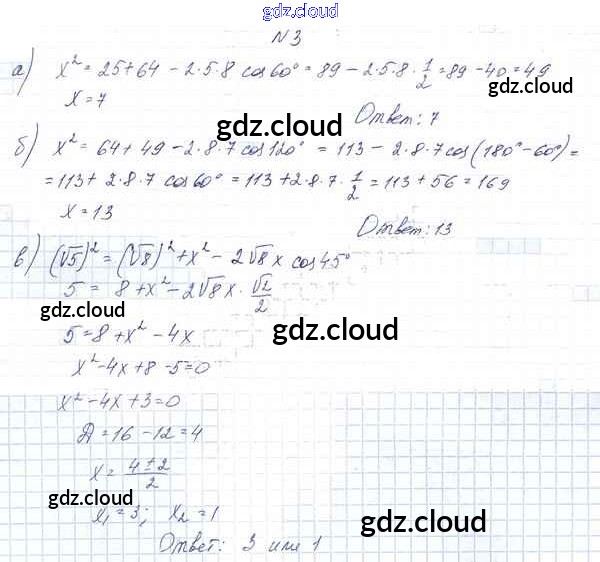 gdz.cloud
N3
а) x² = 25+64 - 2·5·8 cos60° = 89 - 2·5·8·1/2 = 89 - 40 = 49
x = 7
Ответ: 7
gdz.cloud gdz.cloud
б) x² = 64 + 49 - 2·8·7 cos120° = 113 - 2·8·7 cos(180° - 60°) =
= 113 + 2·8·7 cos60° = 113 + 2·8·7·1/2 = 113 + 56 = 169
x = 13
gdz.cloud
Ответ: 13
в) (√5)² = (√8)² + x² - 2√8 x cos45°
5 = 8 + x² - 2√8 x · √2/2
gdz.cloud
5 = 8 + x² - 4x
gdz.cloud
x² - 4x + 8 - 5 = 0
x² - 4x + 3 = 0
Д = 16 - 12 = 4
gdz.cloud
x = (4 ± 2)/2
gdz.cloud
x₁ = 3; x₂ = 1
gdz.cloud
Ответ: 3 или 1